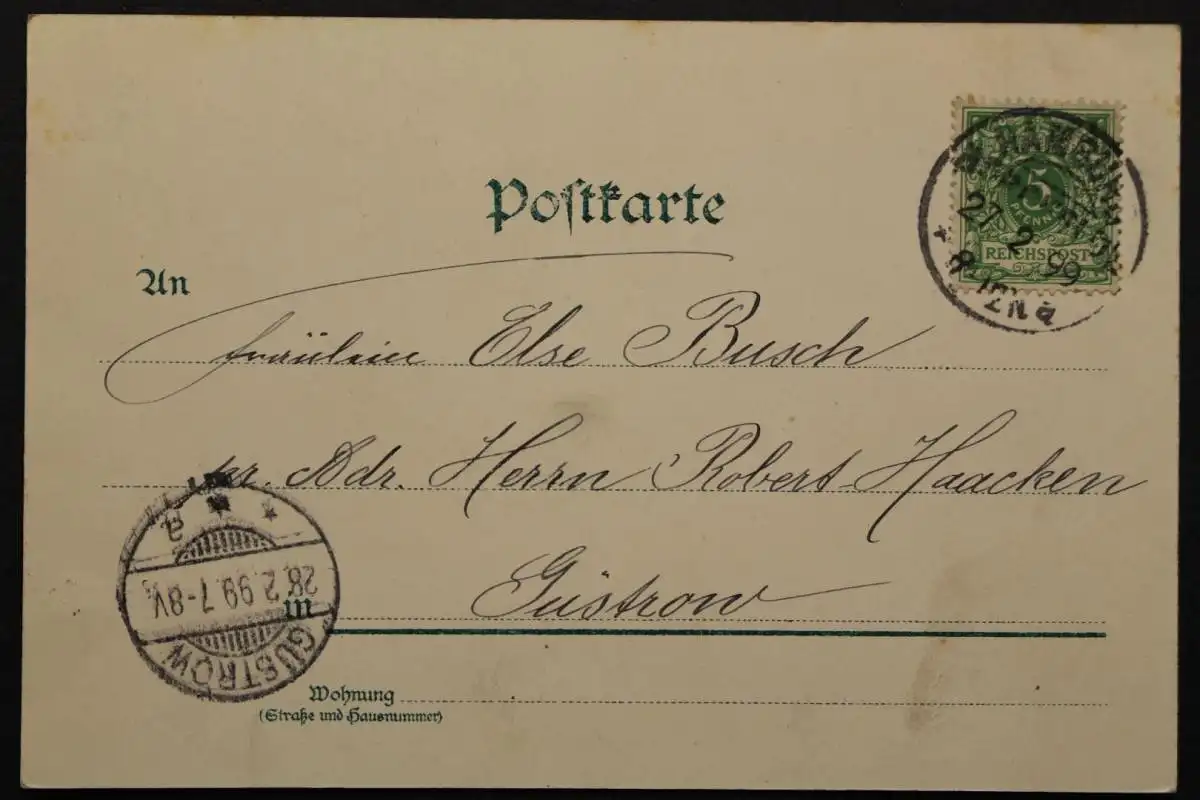 Postkarte
5
PFENNIG
REICHSPOST
HAMBURG
27 2 99
An
Fräulein Else Busch
pr. Adr. Herrn Robert Haacken
in Güstrow
GÜSTROW
28.2.99.7-8V.
Wohnung
(Straße und Hausnummer)